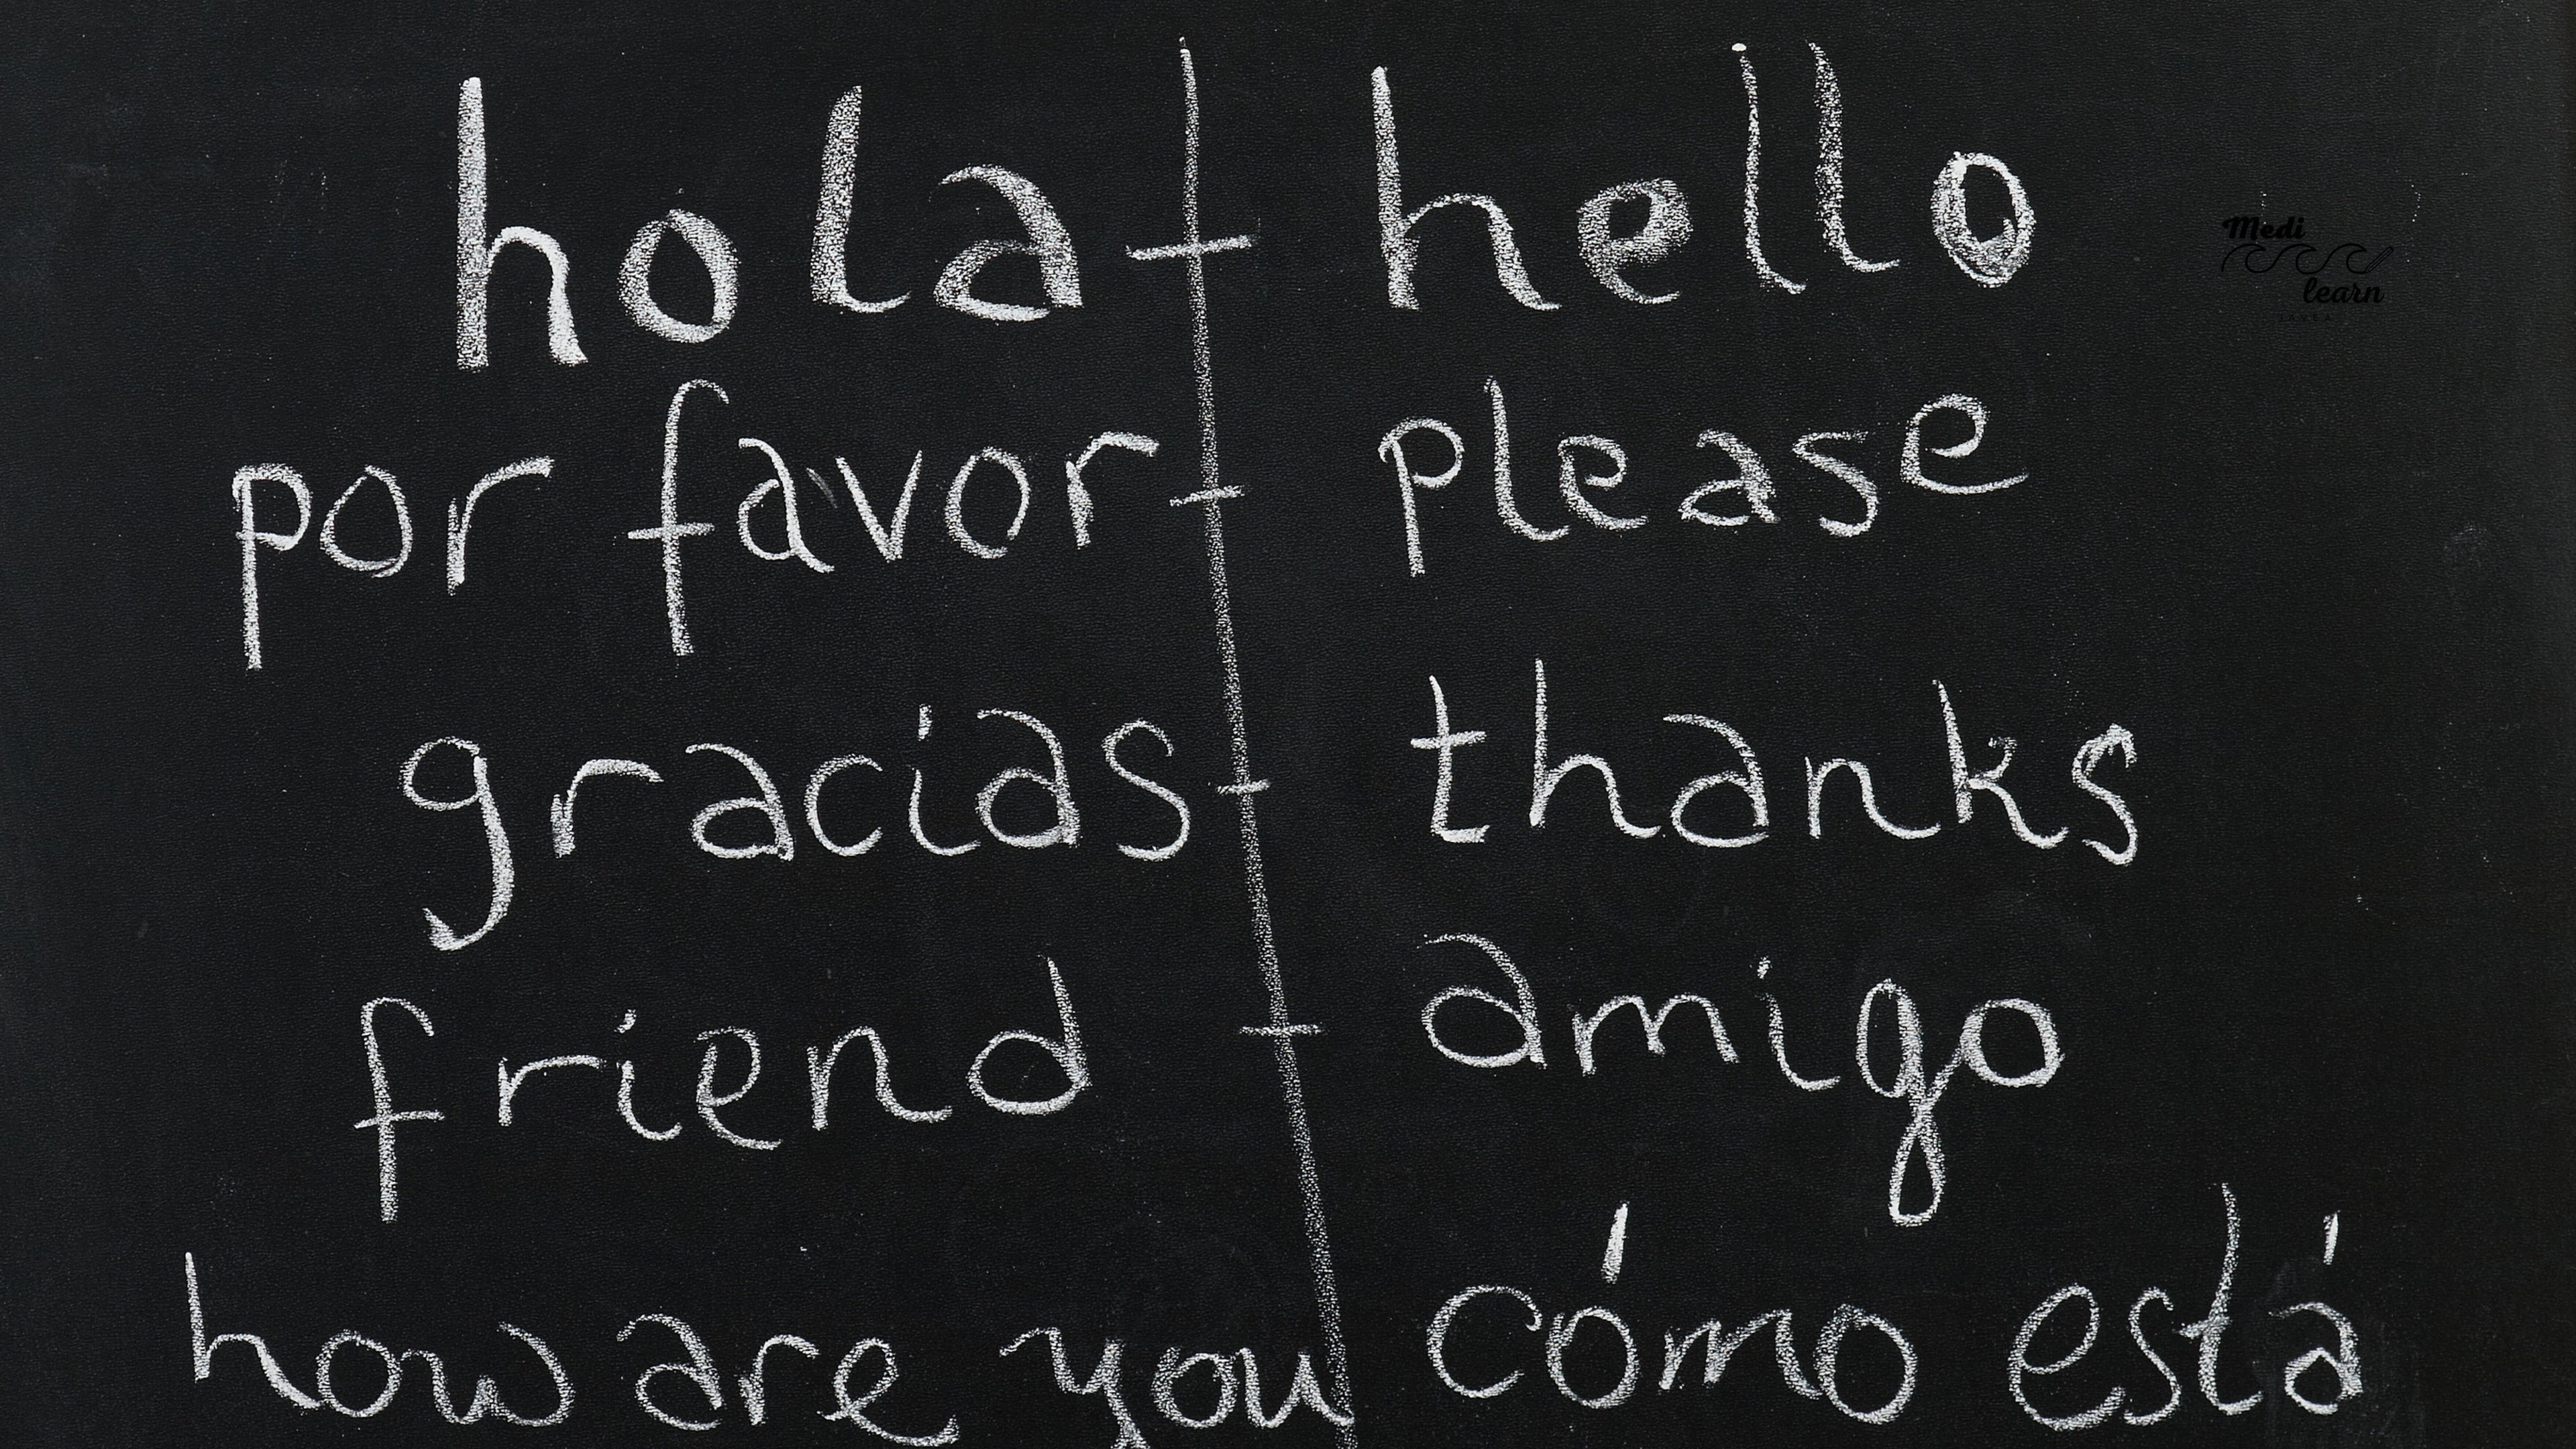 hola - hello
por favor - please
gracias - thanks
friend - amigo
how are you cómo está
Medi
learn